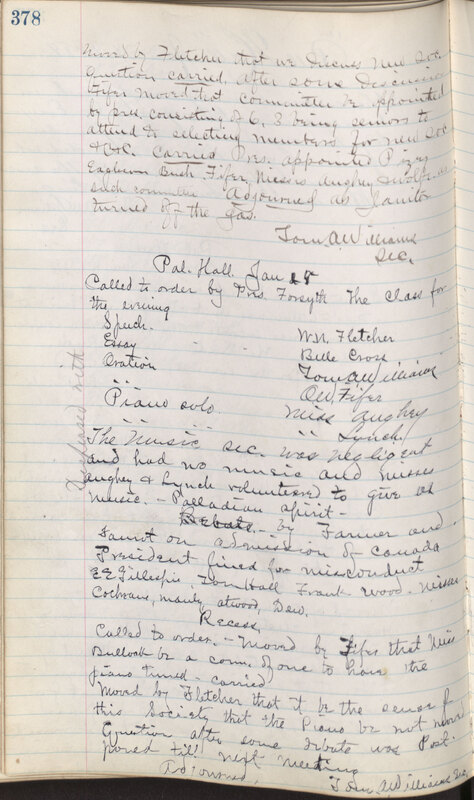 378
Moved by Fletcher that we discuss new Soc
Question carried. After some discussion
Fifer moved that committee be appointed
by pres. consisting of 6, 3 being seniors to
attend to selecting members for new Soc
&c&c. Carried Pres. appointed
Eagleson Bush Fifer, Misses Aughey &
such committee Adjourned as Janitor
turned off the Gas.
Tom A Williams
Sec.
Pal. Hall. Jan 18
Called to order by Pres. Forsyth The class for
the evening
Speech. W.N. Fletcher
Essay Belle Cross
Oration Tom A Williams
" " O.W. Fifer
Piano solo. Miss Aughey
" " " " Lynch
Dispensed with
The Music sec. was negligent
and had no music and misses
Aughey & Lynch volunteered to give us
music. – Palladian spirit –
Debate. – by Farmer and
Faurot on admission of Canada
President fined for misconduct
E E Gillespie, Tom Hall Frank Wood. Misses
Cochrane, Manly, Atwood, Dew.
Recess,
Called to order. – Moved by Fifer that Miss
Bullock be a com. of one to have the
piano tuned – carried
Moved by Fletcher that it be the sense of
this Society that the Piano be not moved
Question after some debate was Post-
poned till next meeting
Adjourned,
Tom A Williams Sec.